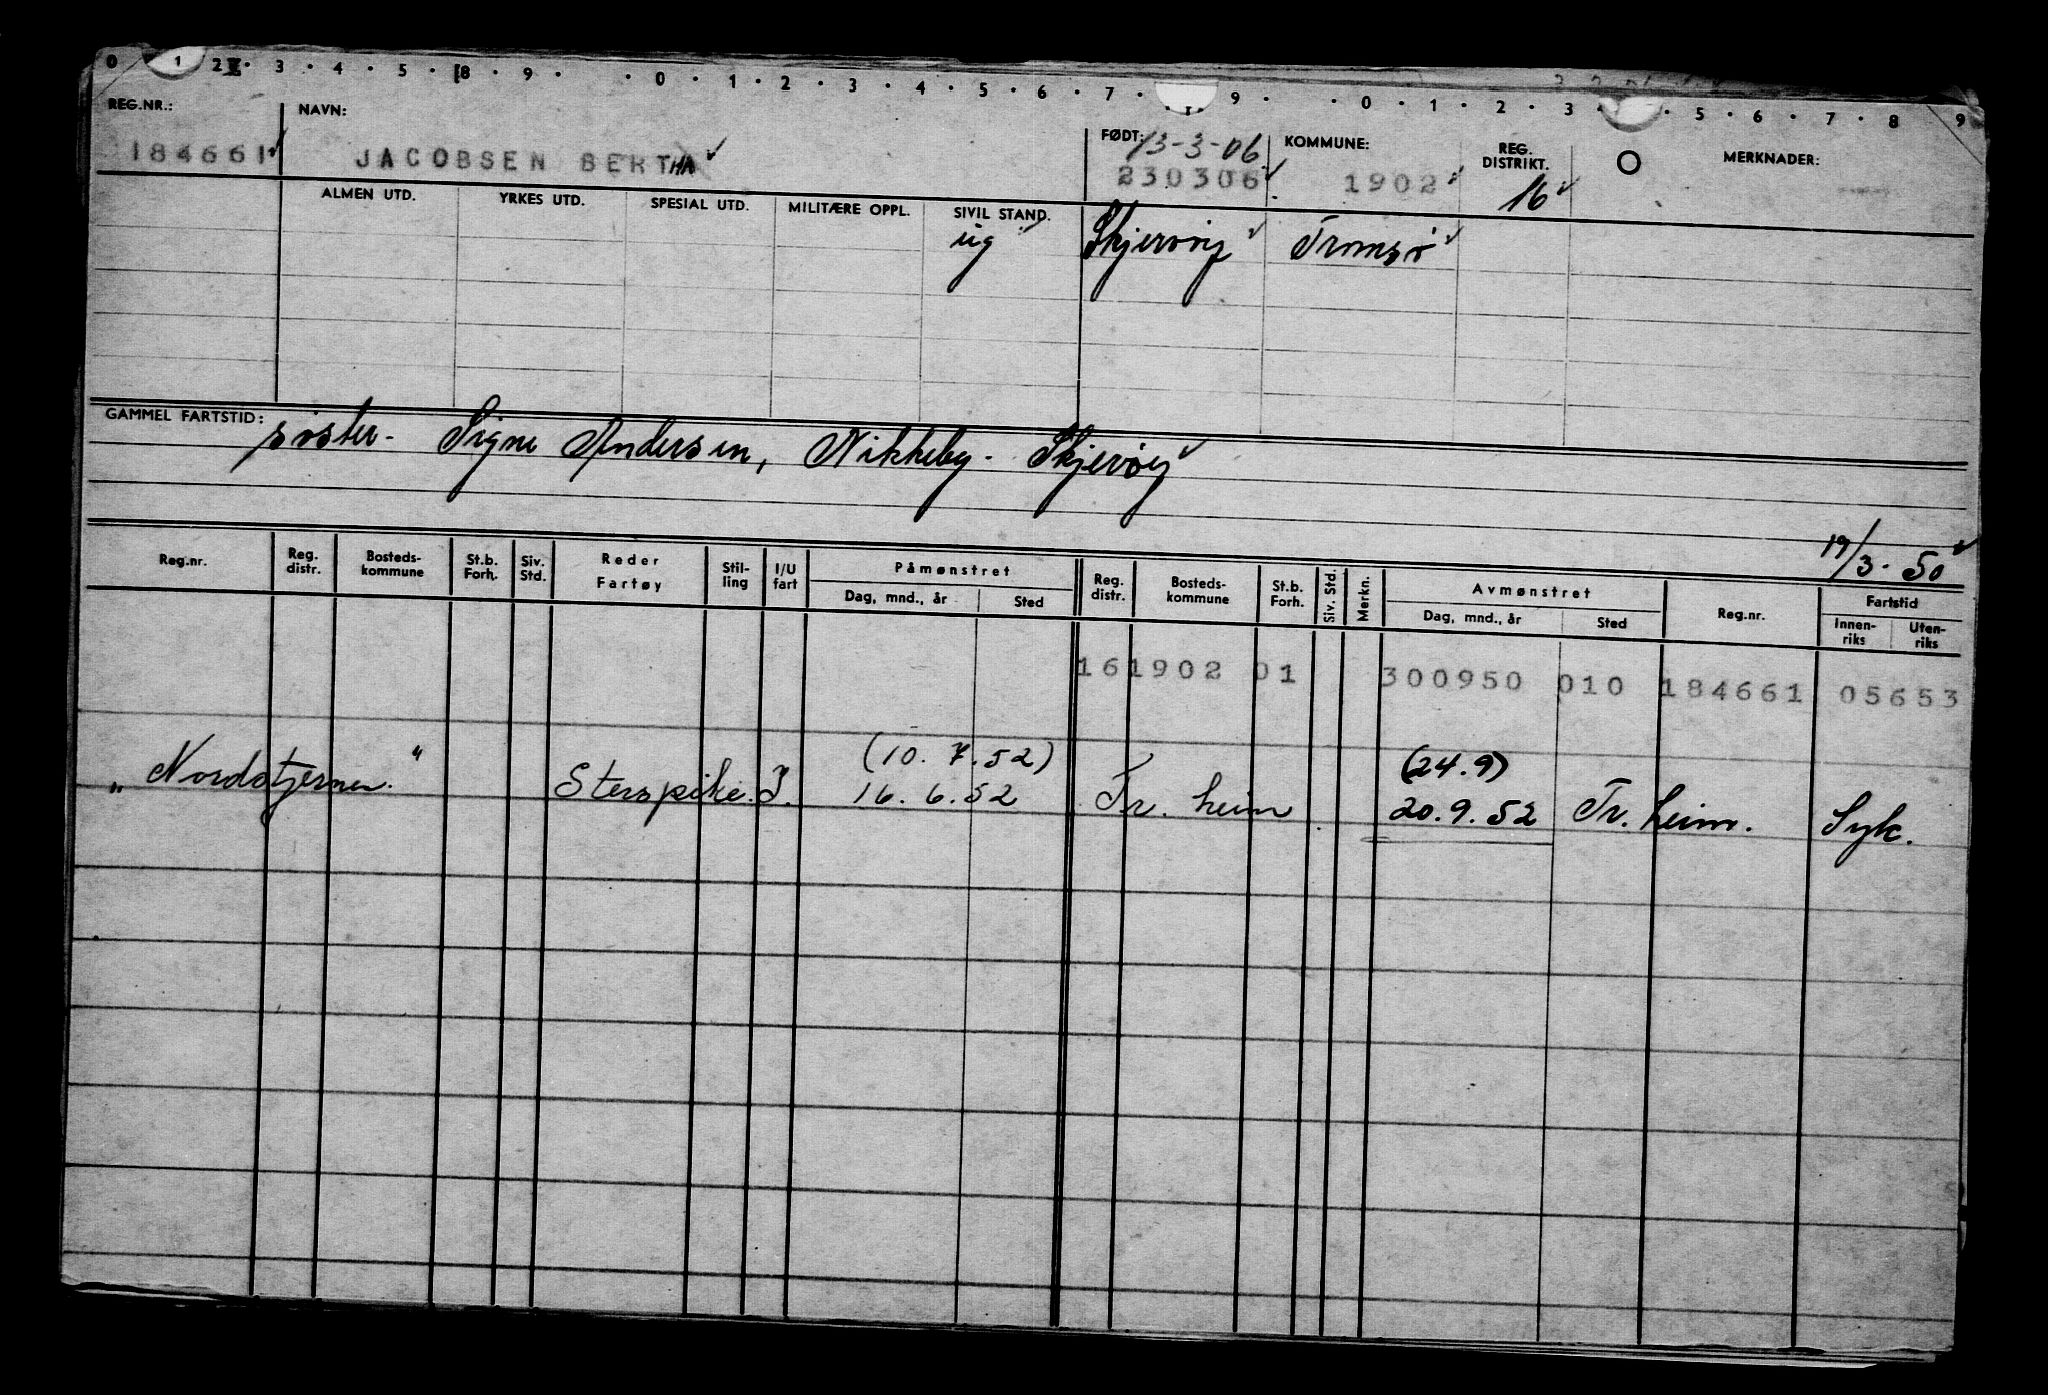 0 1 2 · 3 · 4 · 5 · 8 · 9 · · 0 · 1 · 2 · 3 · 4 · 5 · 6 · 7 · 9 · · 0 · 1 · 2 · 3 · 5 · 6 · 7 · 8 · 9
REG.NR.: NAVN: FØDT: 13-3-06 KOMMUNE: REG. DISTRIKT. MERKNADER:
184661 JACOBSEN BERTHA 230306 1902 16
ALMEN UTD. YRKES UTD. SPESIAL UTD. MILITÆRE OPPL. SIVIL STAND.
ug Skjervøy Tromsø
GAMMEL FARTSTID:
søster - Signe Andersen, Nikkeby - Skjervøy
19/3 - 50
Reg.nr. Reg. distr. Bosteds-kommune St.b. Forh. Siv. Std. Reder Fartøy Stil-ling I/U fart Påmønstret Dag, mnd., år Sted Reg. distr. Bosteds-kommune St.b. Forh. Siv. Std. Merkn. Avmønstret Dag, mnd., år Sted Reg.nr. Fartstid Innen-riks Uten-riks
16 1902 01 300950 010 184661 05653
(10. 7. 52) (24.9)
„Nordstjernen." Sterspike. I. 16. 6. 52 Tr. heim 20. 9. 52 Tr. heim. Syk.